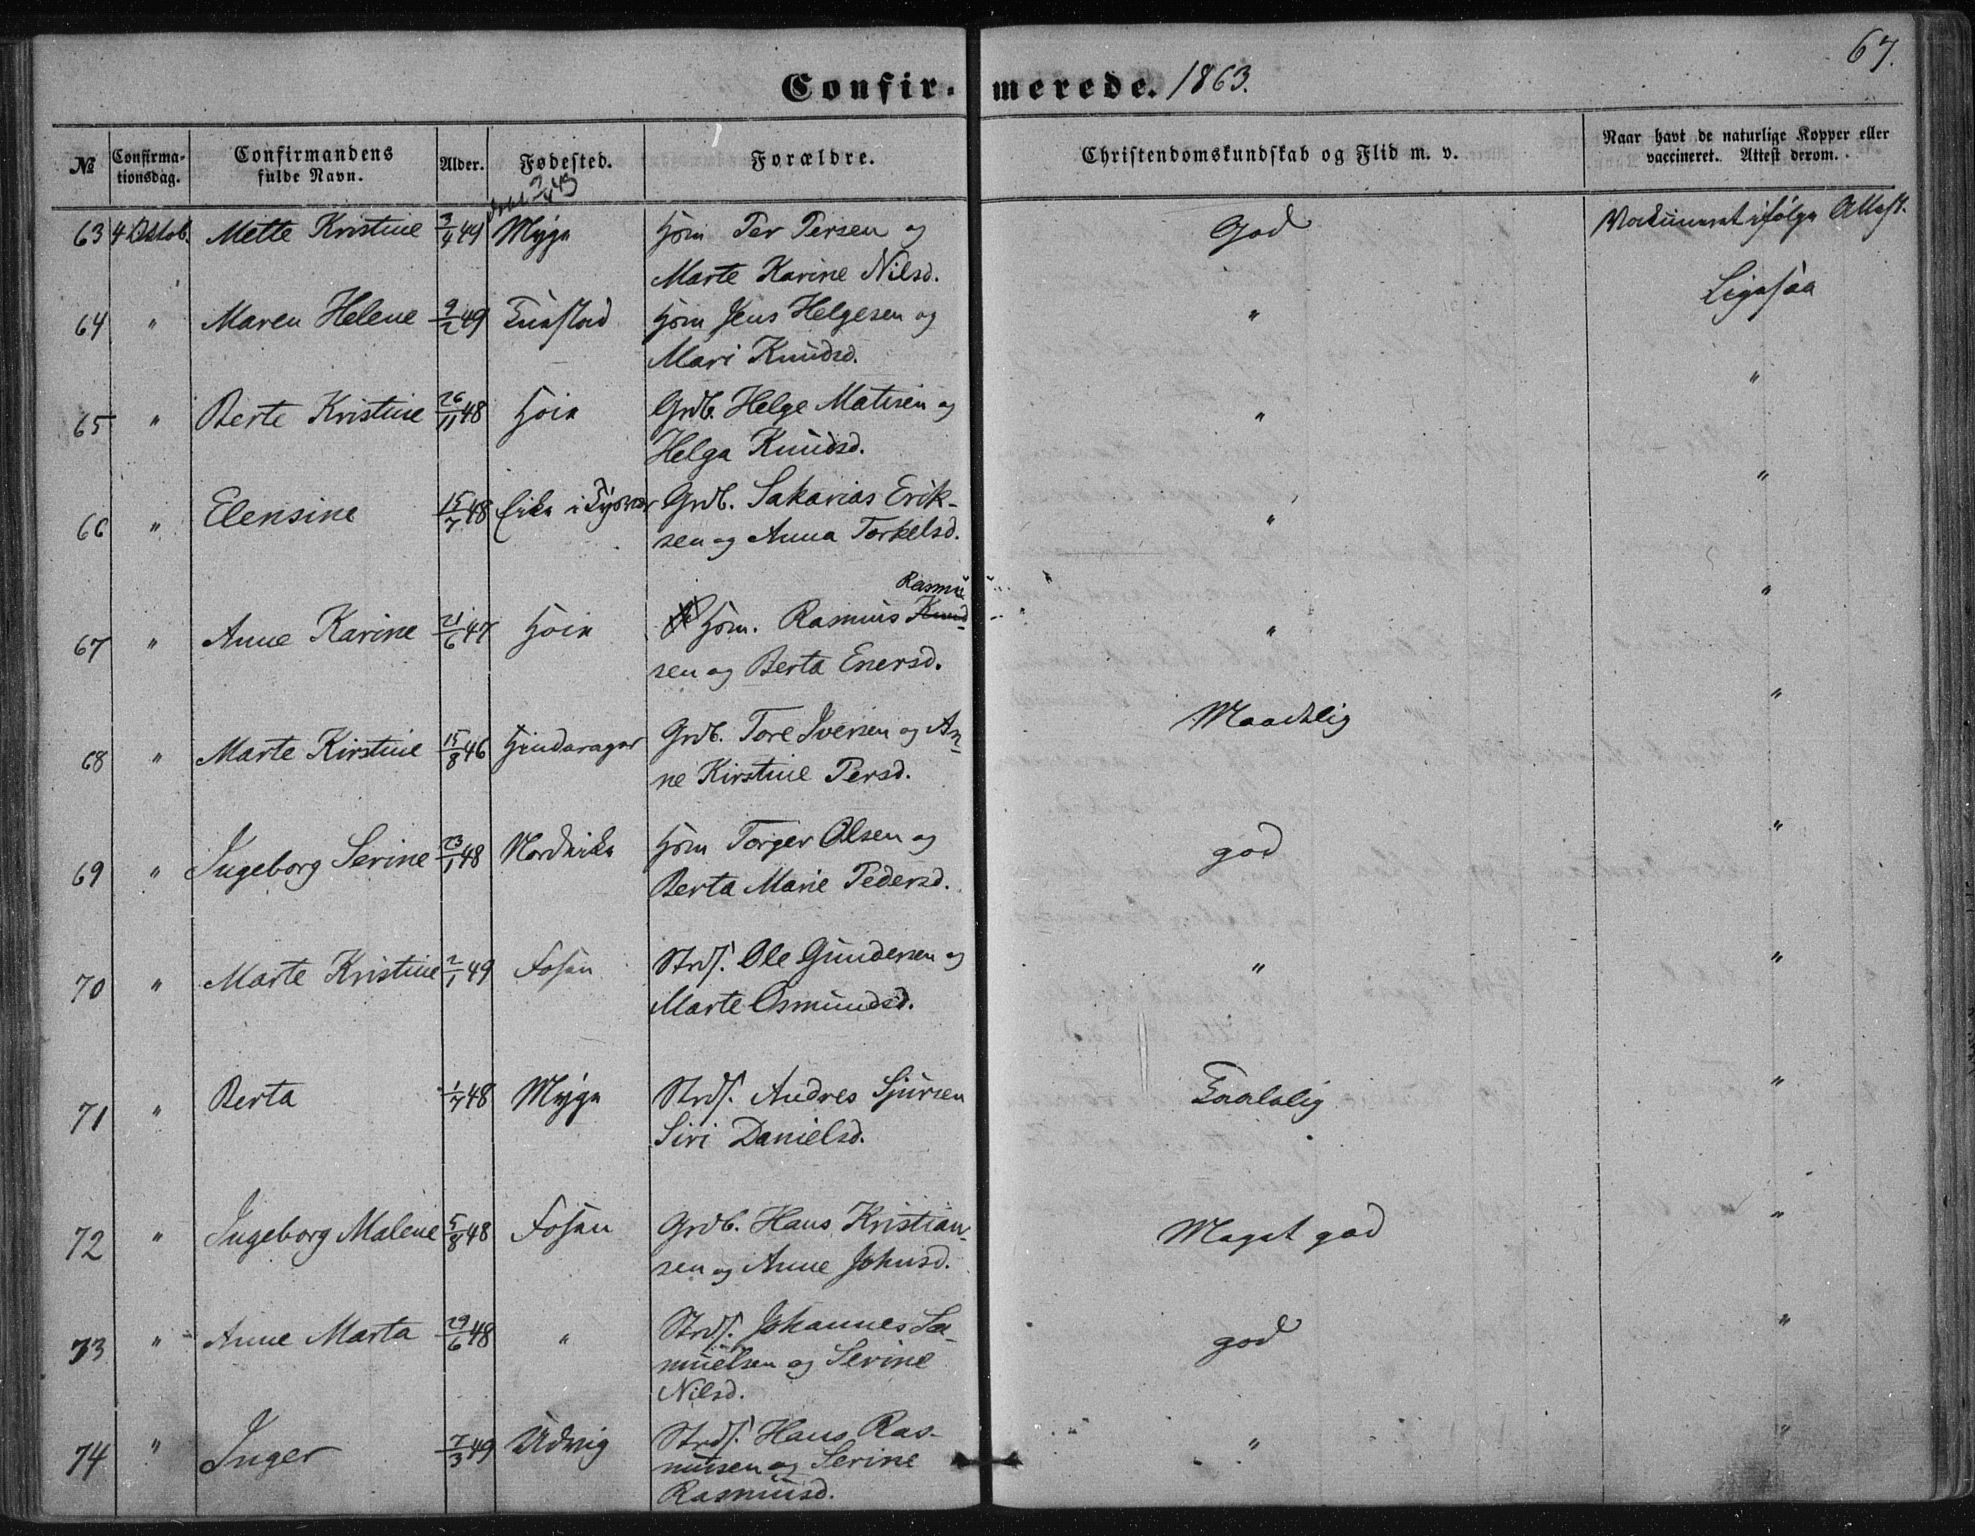 67.
Confir- merede. 1863.
№ Confirma-tionsdag. Confirmandens fulde Navn. Alder. Fødested. Forældre. Christendomskundskab og Flid m. v. Naar havt de naturlige Kopper eller vaccineret. Attest derom.
63 4 Oktob. Mette Kristine 3/4 49 Myge Hsm Per Persen og God Vakcineret ifølge Attest.
Marte Karine Nilsd.
64 " Maren Helene 9/2 49 Hsm Jens Helgesen og " Ligesaa
Mari Knudsd.
65 " Berte Kristine 26/11 48 Høie Grdb. Helge Matisen og " "
Helga Knudsd.
66 " Elensine 15/7 48 Eike i Tysvær Grdb. Sakarias Erik- " "
sen og Anna Torkelsd.
Rasmu
67 " Anne Karine 21/6 47 Høie Hsm. Rasmus Knud- " "
sen og Berta Enersd.
68 " Marte Kirstine 15/8 46 Hinderager Grdb. Tore Iversen og An- Maadelig "
ne Kirstine Persd.
69 " Ingeborg Serine 23/1 48 Nordvike Hsm Torger Olsen og god "
Berta Marie Pedersd.
70 " Marte Kristine 2/1 49 Fosen Strds. Ole Gundersen og " "
Marte Osmundsd.
71 " Berta 1/7 48 Myge Strds. Andres Sjursen Taalelig "
Siri Danielsd.
72 " Ingeborg Malene 5/8 48 Fosen Grdb. Hans Kristian- Meget god "
sen og Anne Johnsd.
73 " Anne Marta 29/6 48 " Strds. Johannes Sa- god "
muelsen og Serine
Nilsd.
74 " Inger 7/3 49 Udvig Strds. Hans Ras- " "
mussen og Serine
Rasmusd.